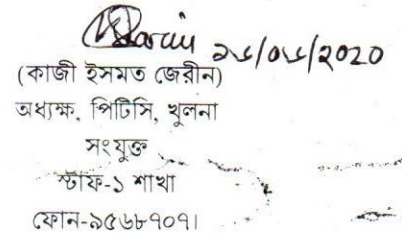 ১৬/০৬/2020
(কাজী ইসমত জেরীন)
অধ্যক্ষ, পিটিসি, খুলনা
সংযুক্ত
স্টাফ-১ শাখা
ফোন-৯৫৬৮৭০৭।